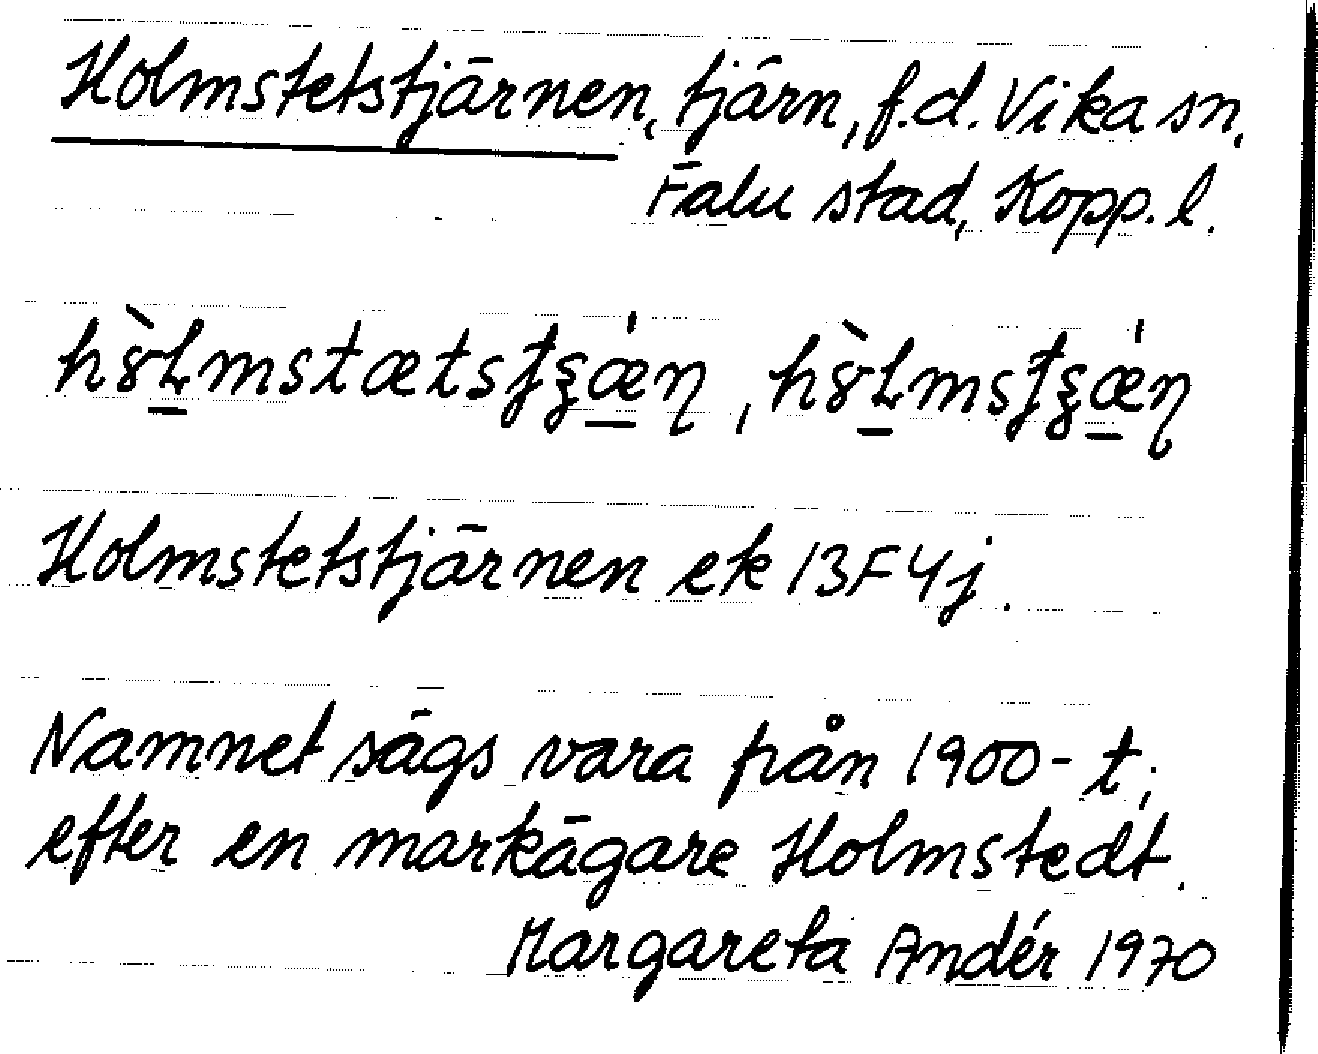 Holmstetstjärnen, tjärn, f.d. Vika sn,
Falu stad, Kopp. l.
Holmstetstjärnen ek 13F4j.
Namnet sägs vara från 1900-t;
efter en markägare Holmstedt.
Margareta Andér 1970